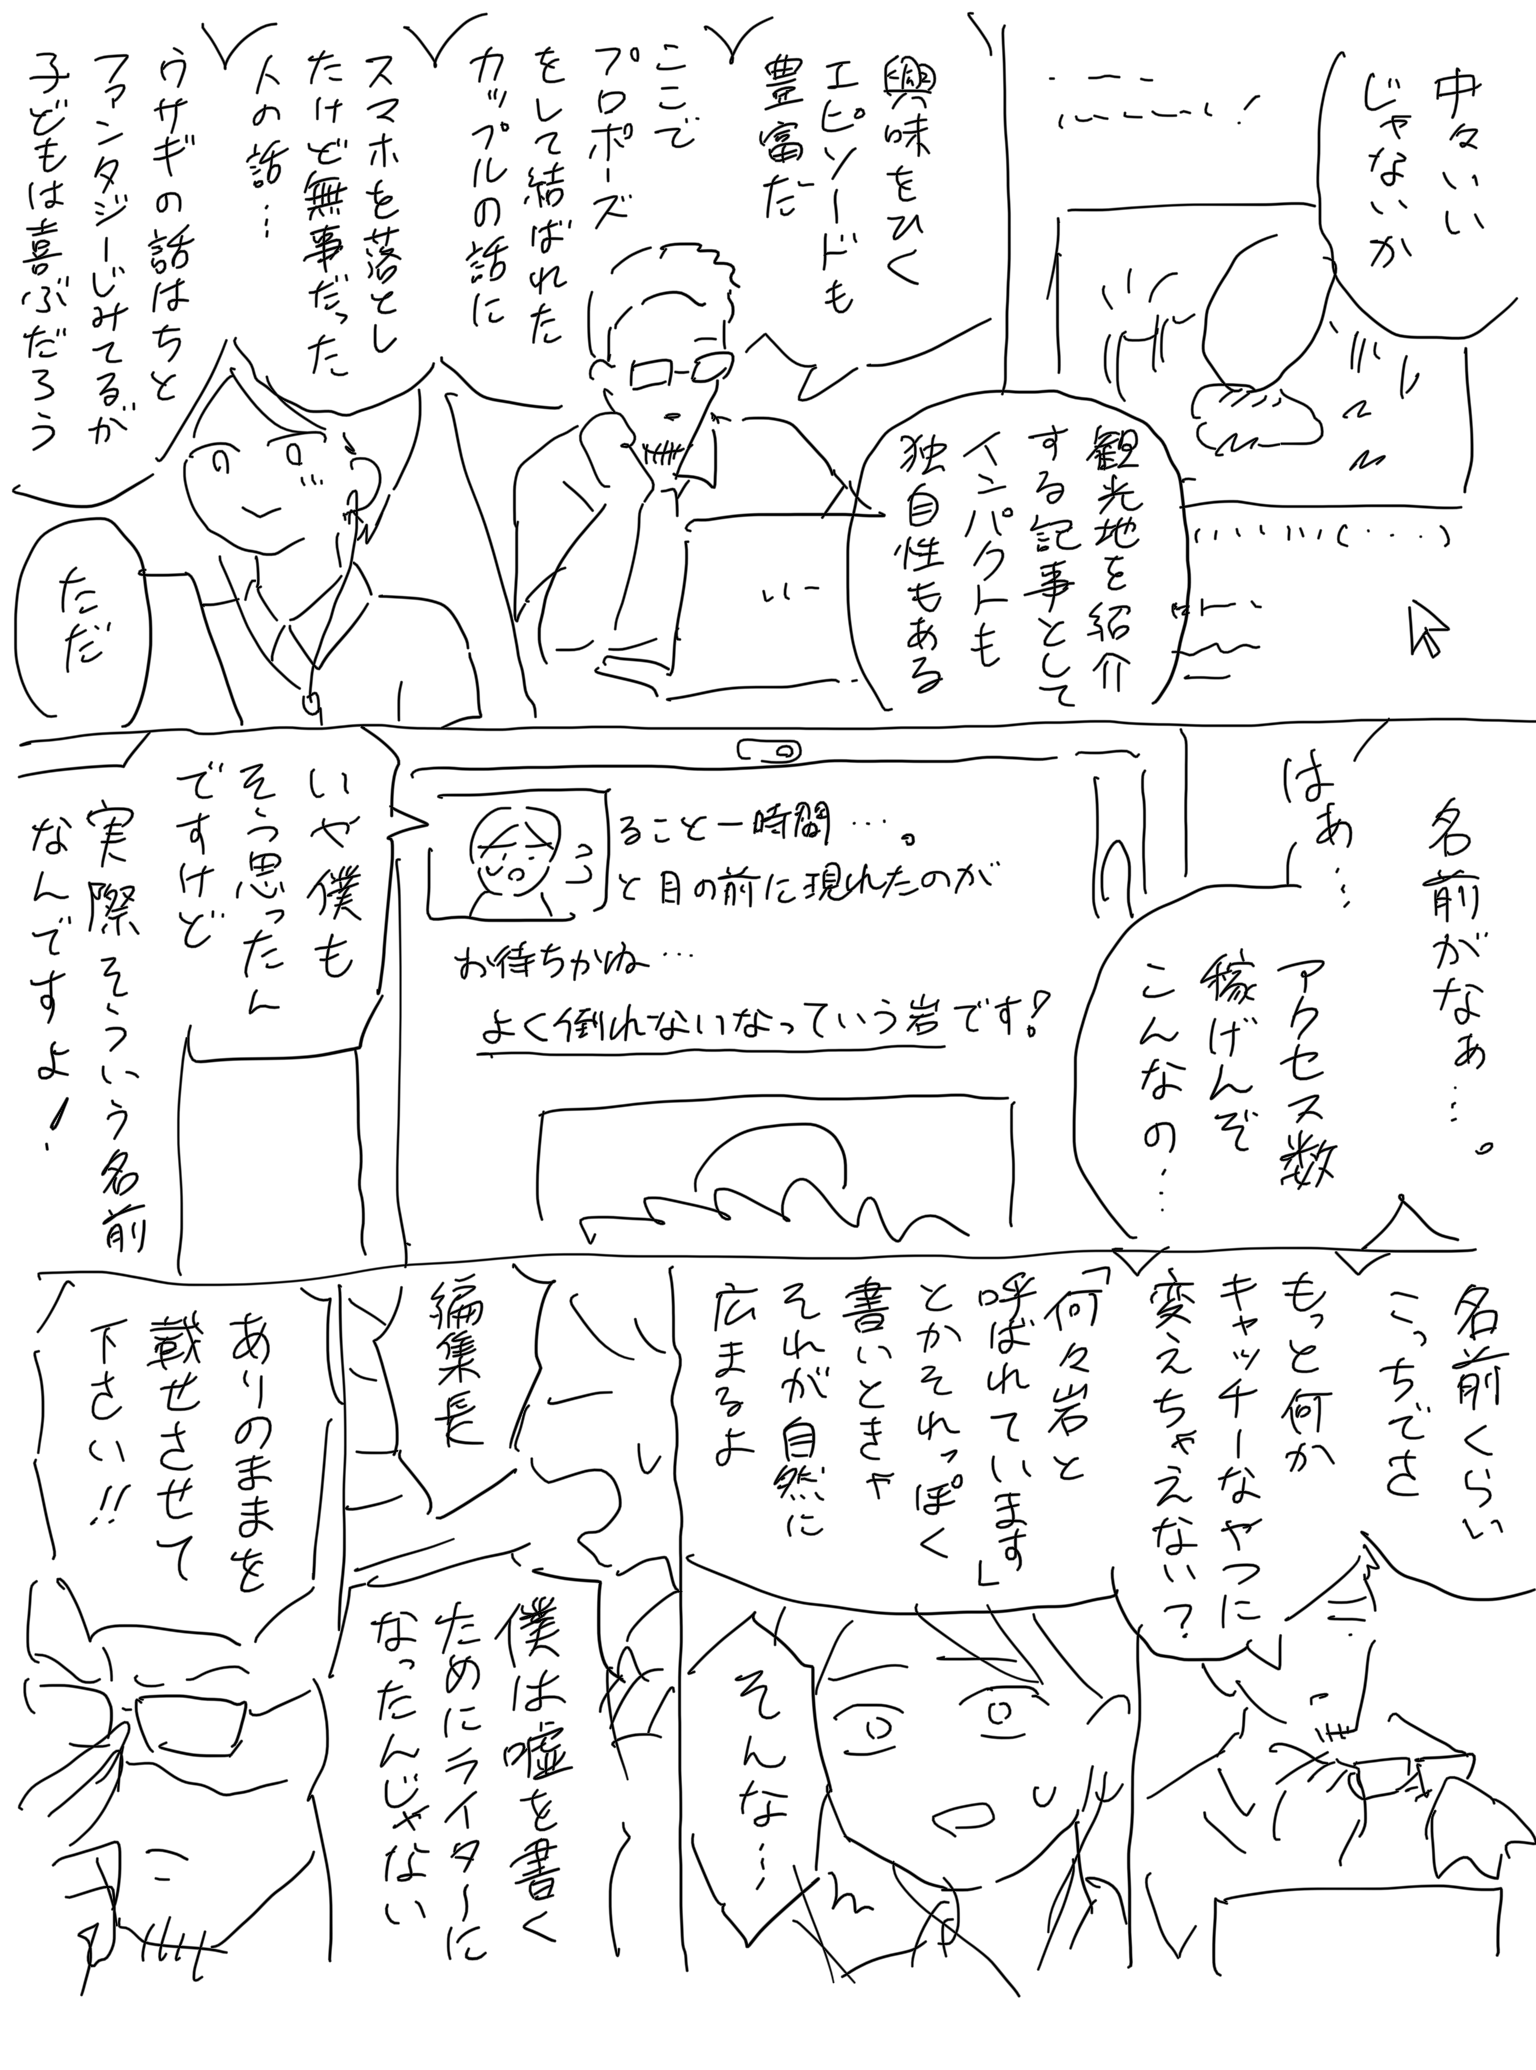 中々いい
じゃないか
観光地を紹介
する記事として
インパクトも
独自性もある
興味をひく
エピソードも
豊富だ
ここで
プロポーズ
をして結ばれた
カップルの話に
スマホを落とし
たけど無事だった
人の話…
ウサギの話はちと
ファンタジーじみてるが
子どもは喜ぶだろう
ただ
名前がなぁ…。
はぁ…
アクセス数
稼げんぞ
こんなの…
ること一時間…。
と目の前に現れたのが
お待ちかぬ…
よく倒れないなっていう岩です!
いや僕も
そう思ったん
ですけど
実際そういう名前
なんですよ!
名前くらい
こっちでさ
もっと何か
キャッチーなやつに
変えちゃえない?
「何々岩と
呼ばれています」
とかそれっぽく
書いときゃ
それが自然に
広まるよ
そんな…
編集長
僕は嘘を書く
ためにライターに
なったんじゃない
ありのままを
載せさせて
下さい!!